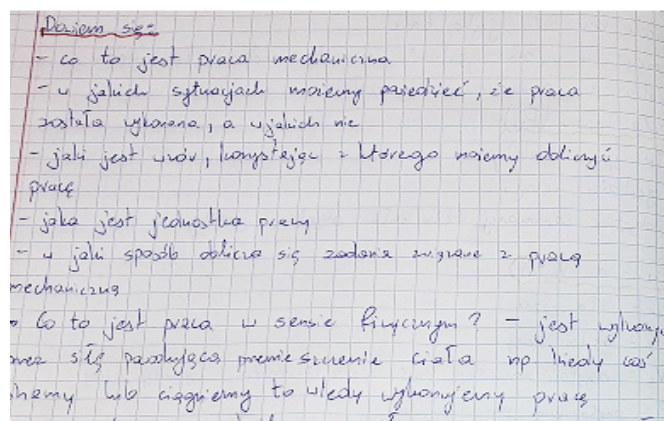 Dowiem się:
- co to jest praca mechaniczna
- w jakich sytuacjach możemy powiedzieć, że praca
została wykonana, a w jakich nie
- jaki jest wzór, korzystając z którego możemy obliczyć
pracę
- jaka jest jednostka pracy
- w jaki sposób oblicza się zadania związane z pracą
mechaniczną
Co to jest praca w sensie fizycznym? - jest
siłę powodującą przemieszczenie ciała np kiedy coś
lub ciągniemy to wtedy wykonujemy pracę